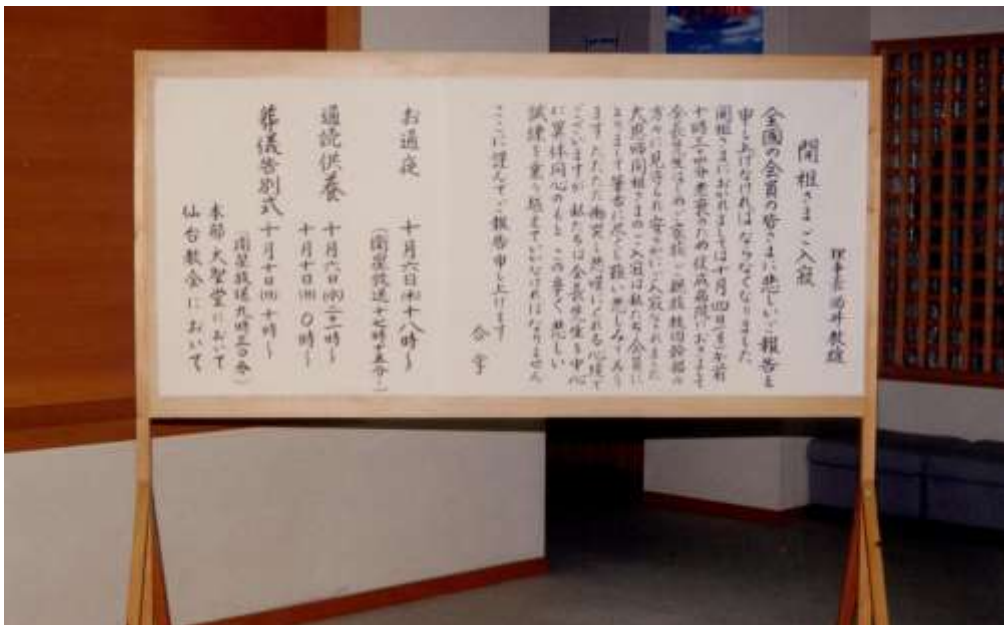 開祖さまご入寂
理事長 酒井教雄
全国の会員の皆さまに悲しいご報告を
申し上げなければならなくなりました
開祖さまにおかれましては十月四日(月)午前
十時三十四分老衰のため佼成病院におきまして
会長先生はじめご家族ご親族教団幹部の
方々に見守られ安らかにご入寂されました
大恩師開祖さまのご入寂は私たち会員に
とりまして筆舌に尽くし難い悲しみであり
ます ただただ働哭し悲嘆にくれる心境で
ございますが私たちは会長先生を中心
に異体同心のもと この辛く悲しい
試練を乗り越えていかなければなりません
ここに謹んでご報告申し上げます
合掌
お通夜 十月六日(水)十八時〜
(衛星放送十七時十五分〜)
通読供養 十月六日(水)二一時〜
十月十日(日)〇時〜
葬儀告別式 十月十日(日)十時〜
(衛星放送九時三〇分〜)
本部 大聖堂において
仙台教会において